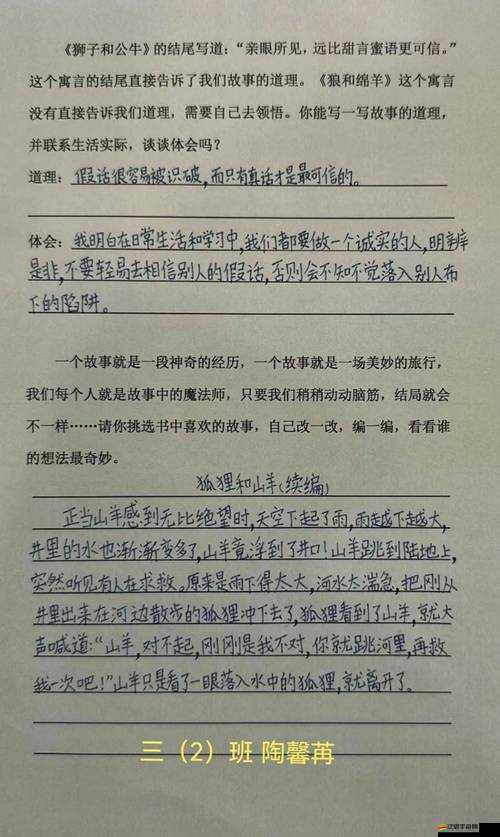 《狮子和公牛》的结尾写道：“亲眼所见，远比甜言蜜语更可信。”
这个寓言的结尾直接告诉了我们故事的道理。《狼和绵羊》这个寓言
没有直接告诉我们道理，需要自己去领悟。你能写一写故事的道理，
并联系生活实际，谈谈体会吗？
道理：假话很容易被识破，而只有真话才是最可信的。
体会：我明白在日常生活和学习中，我们都要做一个诚实的人，明辨
是非，不要轻易去相信别人的假话，否则会不知不觉落入别人布
下的陷阱。
一个故事就是一段神奇的经历，一个故事就是一场美妙的旅行，
我们每个人就是故事中的魔法师，只要我们稍稍动动脑筋，结局就会
不一样……请你挑选书中喜欢的故事，自己改一改，编一编，看看谁
的想法最奇妙。
狐狸和山羊(续编)
正当山羊感到无比绝望时，天空下起了雨，雨越下越大，
井里的水也渐渐变多了，山羊竟浮到了井口！山羊跳到陆地上，
突然听见有人在求救。原来是雨下得太大，河水太湍急，把刚从
井里出来在河边散步的狐狸冲下去了，狐狸看到了山羊，就大
声喊道：“山羊，对不起，刚刚是我不对，你就跳河里，再救
我一次吧！”山羊只是看了一眼落入水中的狐狸，就离开了。
三（2）班 陶馨苒